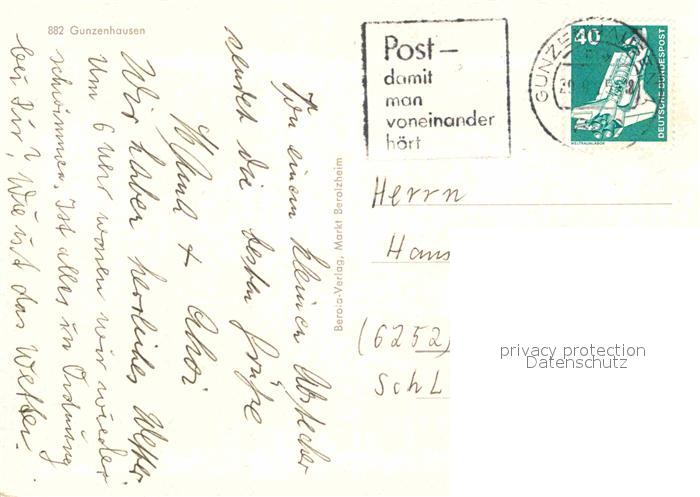 882 Gunzenhausen
Von einem kleinen Abstecher
sendet die besten Grüße
Mama +
Wir haben herrliches Wetter.
Um 6 Uhr waren wir wieder
schwimmen. Ist alles in Ordnung
bei Dir? Wie ist das Wetter.
Berola-Verlag, Markt Berolzheim
Post –
damit
man
voneinander
hört
GUNZENHAUSEN
40
DEUTSCHE BUNDESPOST
WELTRAUMLABOR
Herrn
Hans
(6252)
Schl
privacy protection
Datenschutz